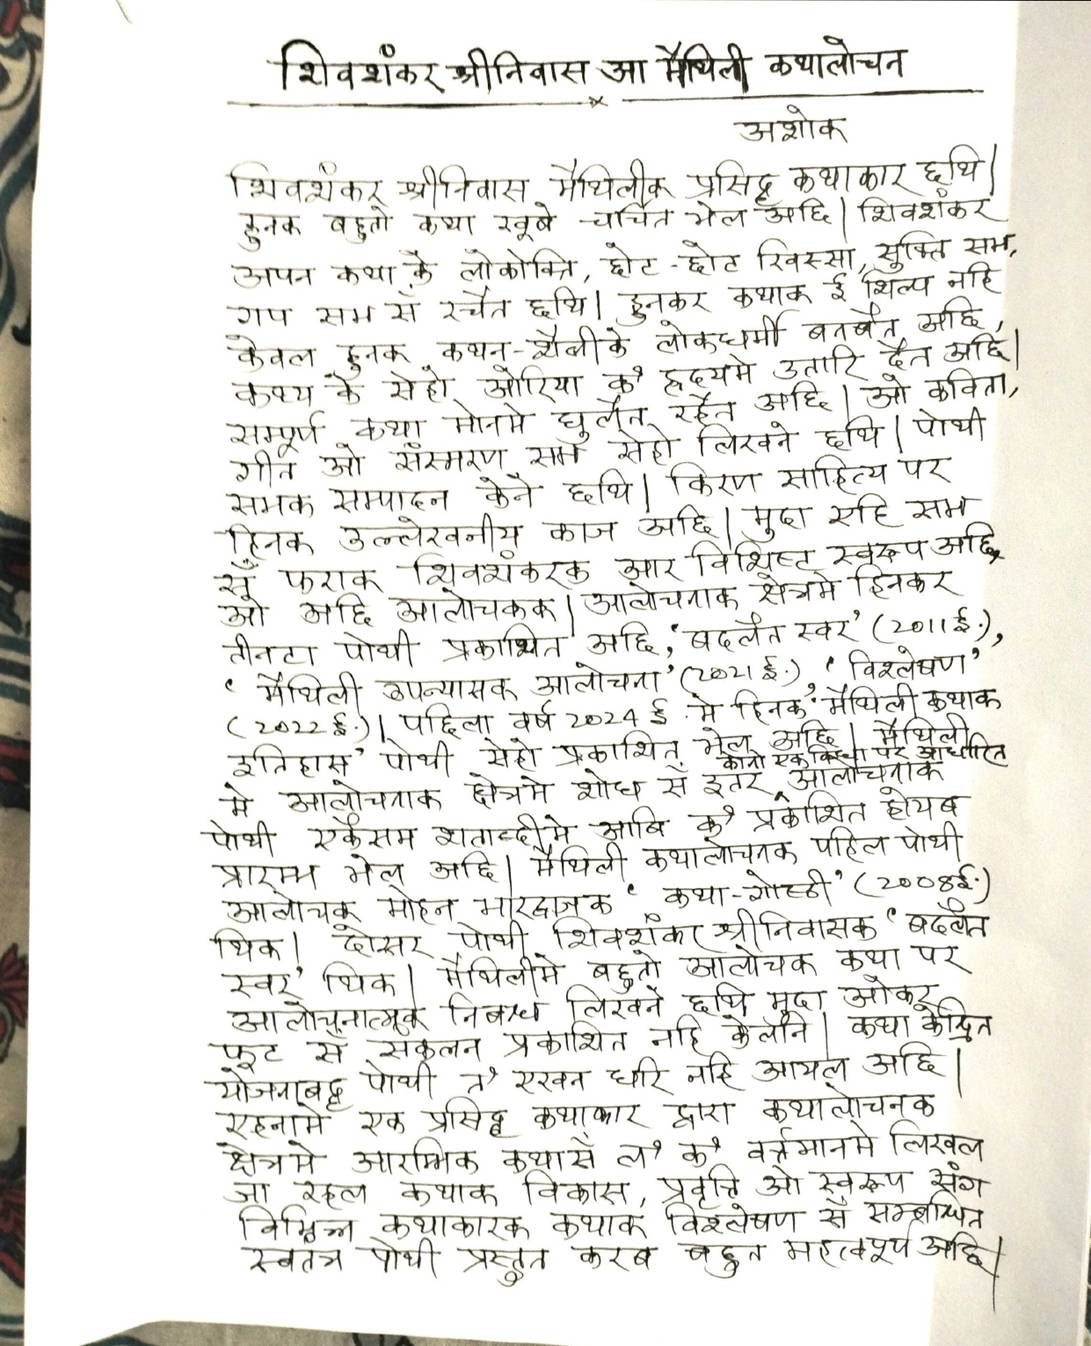 शिवशंकर श्रीनिवास आ मैथिली कथालोचन
अशोक
शिवशंकर श्रीनिवास मैथिलीक प्रसिद्ध कथाकार छथि।
हुनक बहुतो कथा खूबे चर्चित भेल अछि। शिवशंकर
अपन कथा कें लोकोक्ति, छोट-छोट खिस्सा, सुक्ति सभ,
गप सभ सँ रचैत छथि। हुनकर कथाक ई शिल्प नहि
केवल हुनक कथन-शैलीकें लोकधर्मी बनबैत अछि,
कथ्य कें सेहो ओरिया क' हृदयमे उतारि दैत अछि।
सम्पूर्ण कथा मोनमे घुलैत रहैत अछि। ओ कविता,
गीत ओ संस्मरण सभ सेहो लिखने छथि। पोथी
सभक सम्पादन केने छथि। किरण साहित्य पर
हिनक उल्लेखनीय काज अछि। मुदा एहि सभ
सँ फराक शिवशंकरक आर विशिष्ट स्वरूप अछि,
ओ अछि आलोचकक। आलोचनाक क्षेत्रमे हिनकर
तीनटा पोथी प्रकाशित अछि, 'बदलैत स्वर' (2011ई.),
'मैथिली उपन्यासक आलोचना' (2021 ई.) 'विश्लेषण'
(2022 ई.)। पछिला वर्ष 2024 ई. मे हिनक 'मैथिली कथाक
इतिहास' पोथी सेहो प्रकाशित भेल अछि। मैथिली
मे आलोचनाक क्षेत्रमे शोध सँ इतर कोनो एक विधा पर आधारित आलोचनाक
पोथी एकैसम शताब्दीमे आबि क' प्रकाशित होयब
प्रारम्भ भेल अछि। मैथिली कथालोचनक पहिल पोथी
आलोचक मोहन भारद्वाजक 'कथा-गोष्ठी' (2008ई.)
थिक। दोसर पोथी शिवशंकर श्रीनिवासक 'बदलैत
स्वर' थिक। मैथिलीमे बहुतो आलोचक कथा पर
आलोचनात्मक निबन्ध लिखने छथि मुदा ओकर
फूट सँ संकलन प्रकाशित नहि केलनि। कथा केन्द्रित
योजनाबद्ध पोथी त' एखन धरि नहि आयल अछि।
एहनामे एक प्रसिद्ध कथाकार द्वारा कथालोचनक
क्षेत्रमे आरम्भिक कथासँ ल' क' वर्त्तमानमे लिखल
जा रहल कथाक विकास, प्रवृत्ति ओ स्वरूप संग
विभिन्न कथाकारक कथाक विश्लेषण सँ सम्बन्धित
स्वतंत्र पोथी प्रस्तुत करब बहुत महत्वपूर्ण अछि।